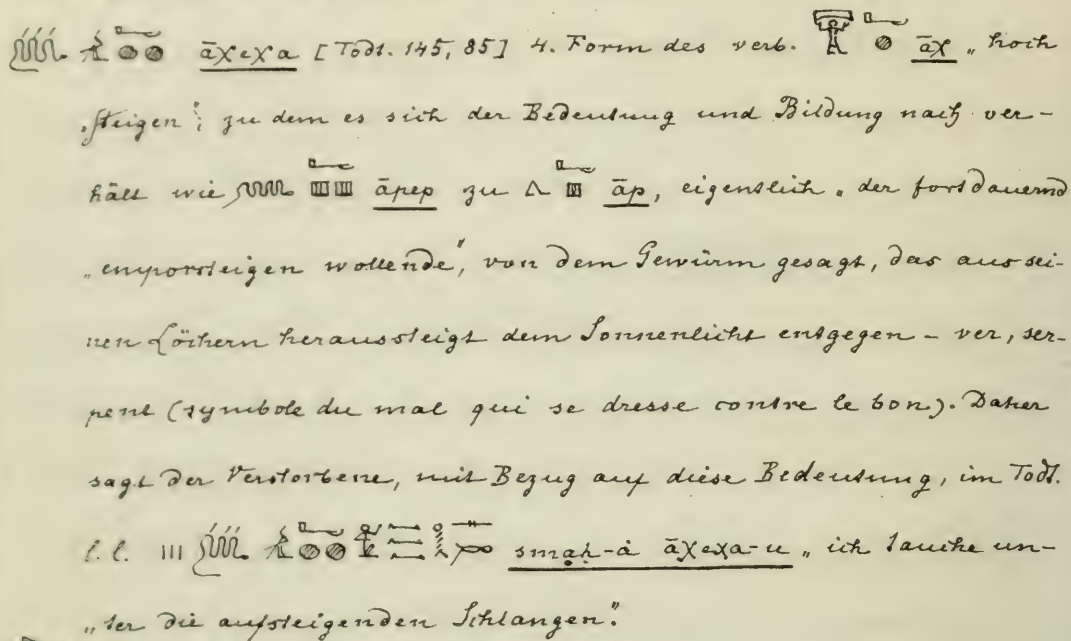 āχeχa [Todt. 145, 85] 4. Form des verb. āχ „hoch
„steigen“, zu dem es sich der Bedeutung und Bildung nach ver-
hält wie āpep zu āp, eigentlich „der fortdauernd
„emporsteigen wollende“, von dem Gewürm gesagt, das aus sei-
nen Löchern heraussteigt dem Sonnenlicht entgegen – ver, ser-
pent (symbole du mal qui se dresse contre le bon). Daher
sagt der Verstorbene, mit Bezug auf diese Bedeutung, im Todt.
l. l. smaḥ-à āχeχa-u „ich tauche un-
„ter die aufsteigenden Schlangen“.